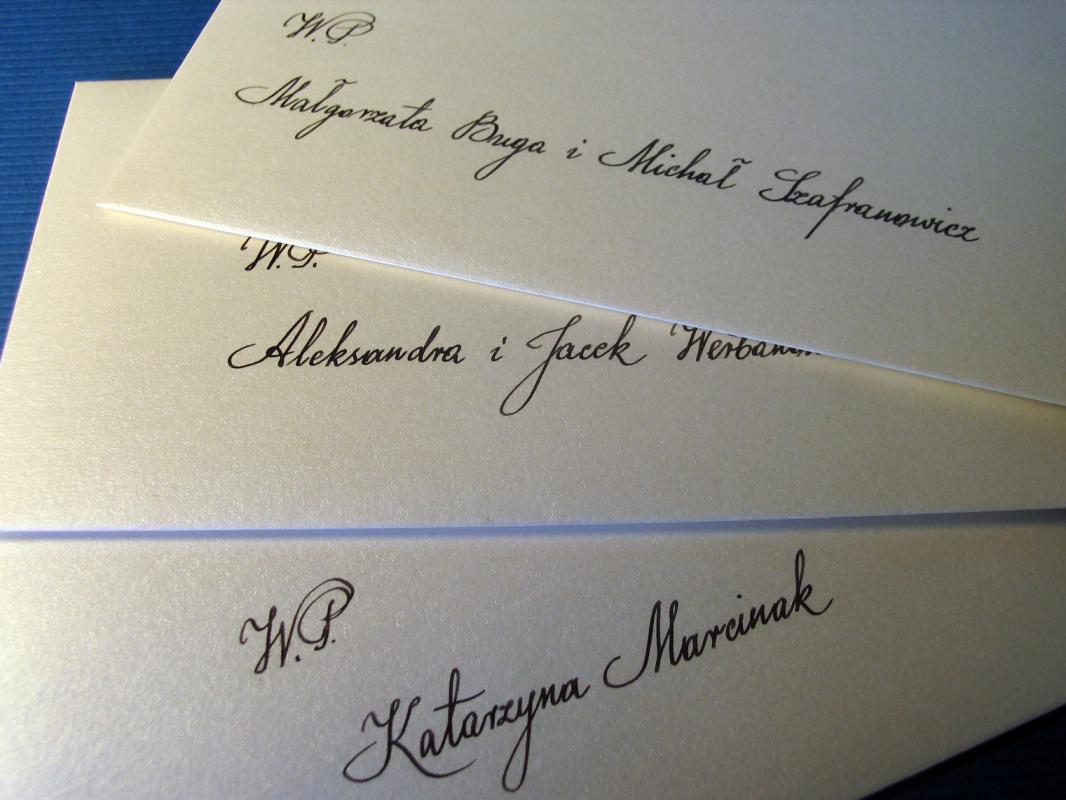 W.P.
Małgorzata Buga i Michał Szafranowicz
W.P.
Aleksandra i Jacek
W.P.
Katarzyna Marcinak